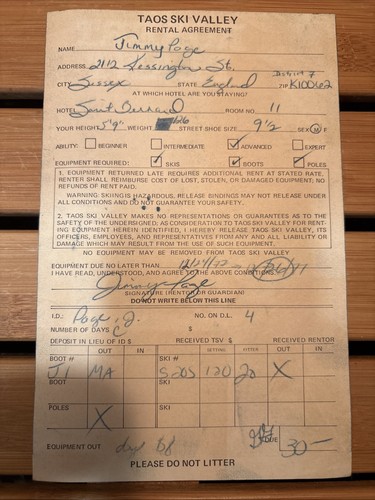 TAOS SKI VALLEY
RENTAL AGREEMENT
NAME Jimmy Page
ADDRESS 2112 Kessington St.
CITY Sussex STATE England ZIP
AT WHICH HOTEL ARE YOU STAYING?
HOTEL Saint Bernard ROOM NO. 11
YOUR HEIGHT 5'9" WEIGHT STREET SHOE SIZE 9½ SEX M F
ABILITY: BEGINNER INTERMEDIATE ADVANCED EXPERT
EQUIPMENT REQUIRED: SKIS BOOTS POLES
1. EQUIPMENT RETURNED LATE REQUIRES ADDITIONAL RENT AT STATED RATE.
RENTER SHALL REIMBURSE COST OF LOST, STOLEN, OR DAMAGED EQUIPMENT. NO
REFUNDS OF RENT PAID.
WARNING: SKIING IS HAZARDOUS, RELEASE BINDINGS MAY NOT RELEASE UNDER
ALL CONDITIONS AND DO NOT GUARANTEE YOUR SAFETY.
2. TAOS SKI VALLEY MAKES NO REPRESENTATIONS OR GUARANTEES AS TO THE
SAFETY OF THE UNDERSIGNED. AS CONSIDERATION TO TAOS SKI VALLEY FOR RENT-
ING EQUIPMENT HEREIN IDENTIFIED, I HEREBY RELEASE TAOS SKI VALLEY, ITS
OFFICERS, EMPLOYES, AND REPRESENTATIVES FROM ANY AND ALL LIABILITY OR
DAMAGE WHICH MAY RESULT FROM THE USE OF SUCH EQUIPMENT.
NO EQUIPMENT MAY BE REMOVED FROM TAOS SKI VALLEY
EQUIPMENT DUE NO LATER THAN
I HAVE READ, UNDERSTOOD, AND AGREE TO THE ABOVE CONDITIONS.
Jimmy Page
SIGNATURE (RENTOR OR GUARDIAN)
DO NOT WRITE BELOW THIS LINE
I.D.: Page, J. NO. ON D.L. 4
NUMBER OF DAYS
DEPOSIT IN LIEU OF ID $ RECEIVED TSV $ RECEIVED RENTOR
BOOT # OUT IN SKI # SETTING FITTER OUT IN
J1 MA S205 120 X
POLES X SKI
EQUIPMENT OUT DUE 30—
PLEASE DO NOT LITTER